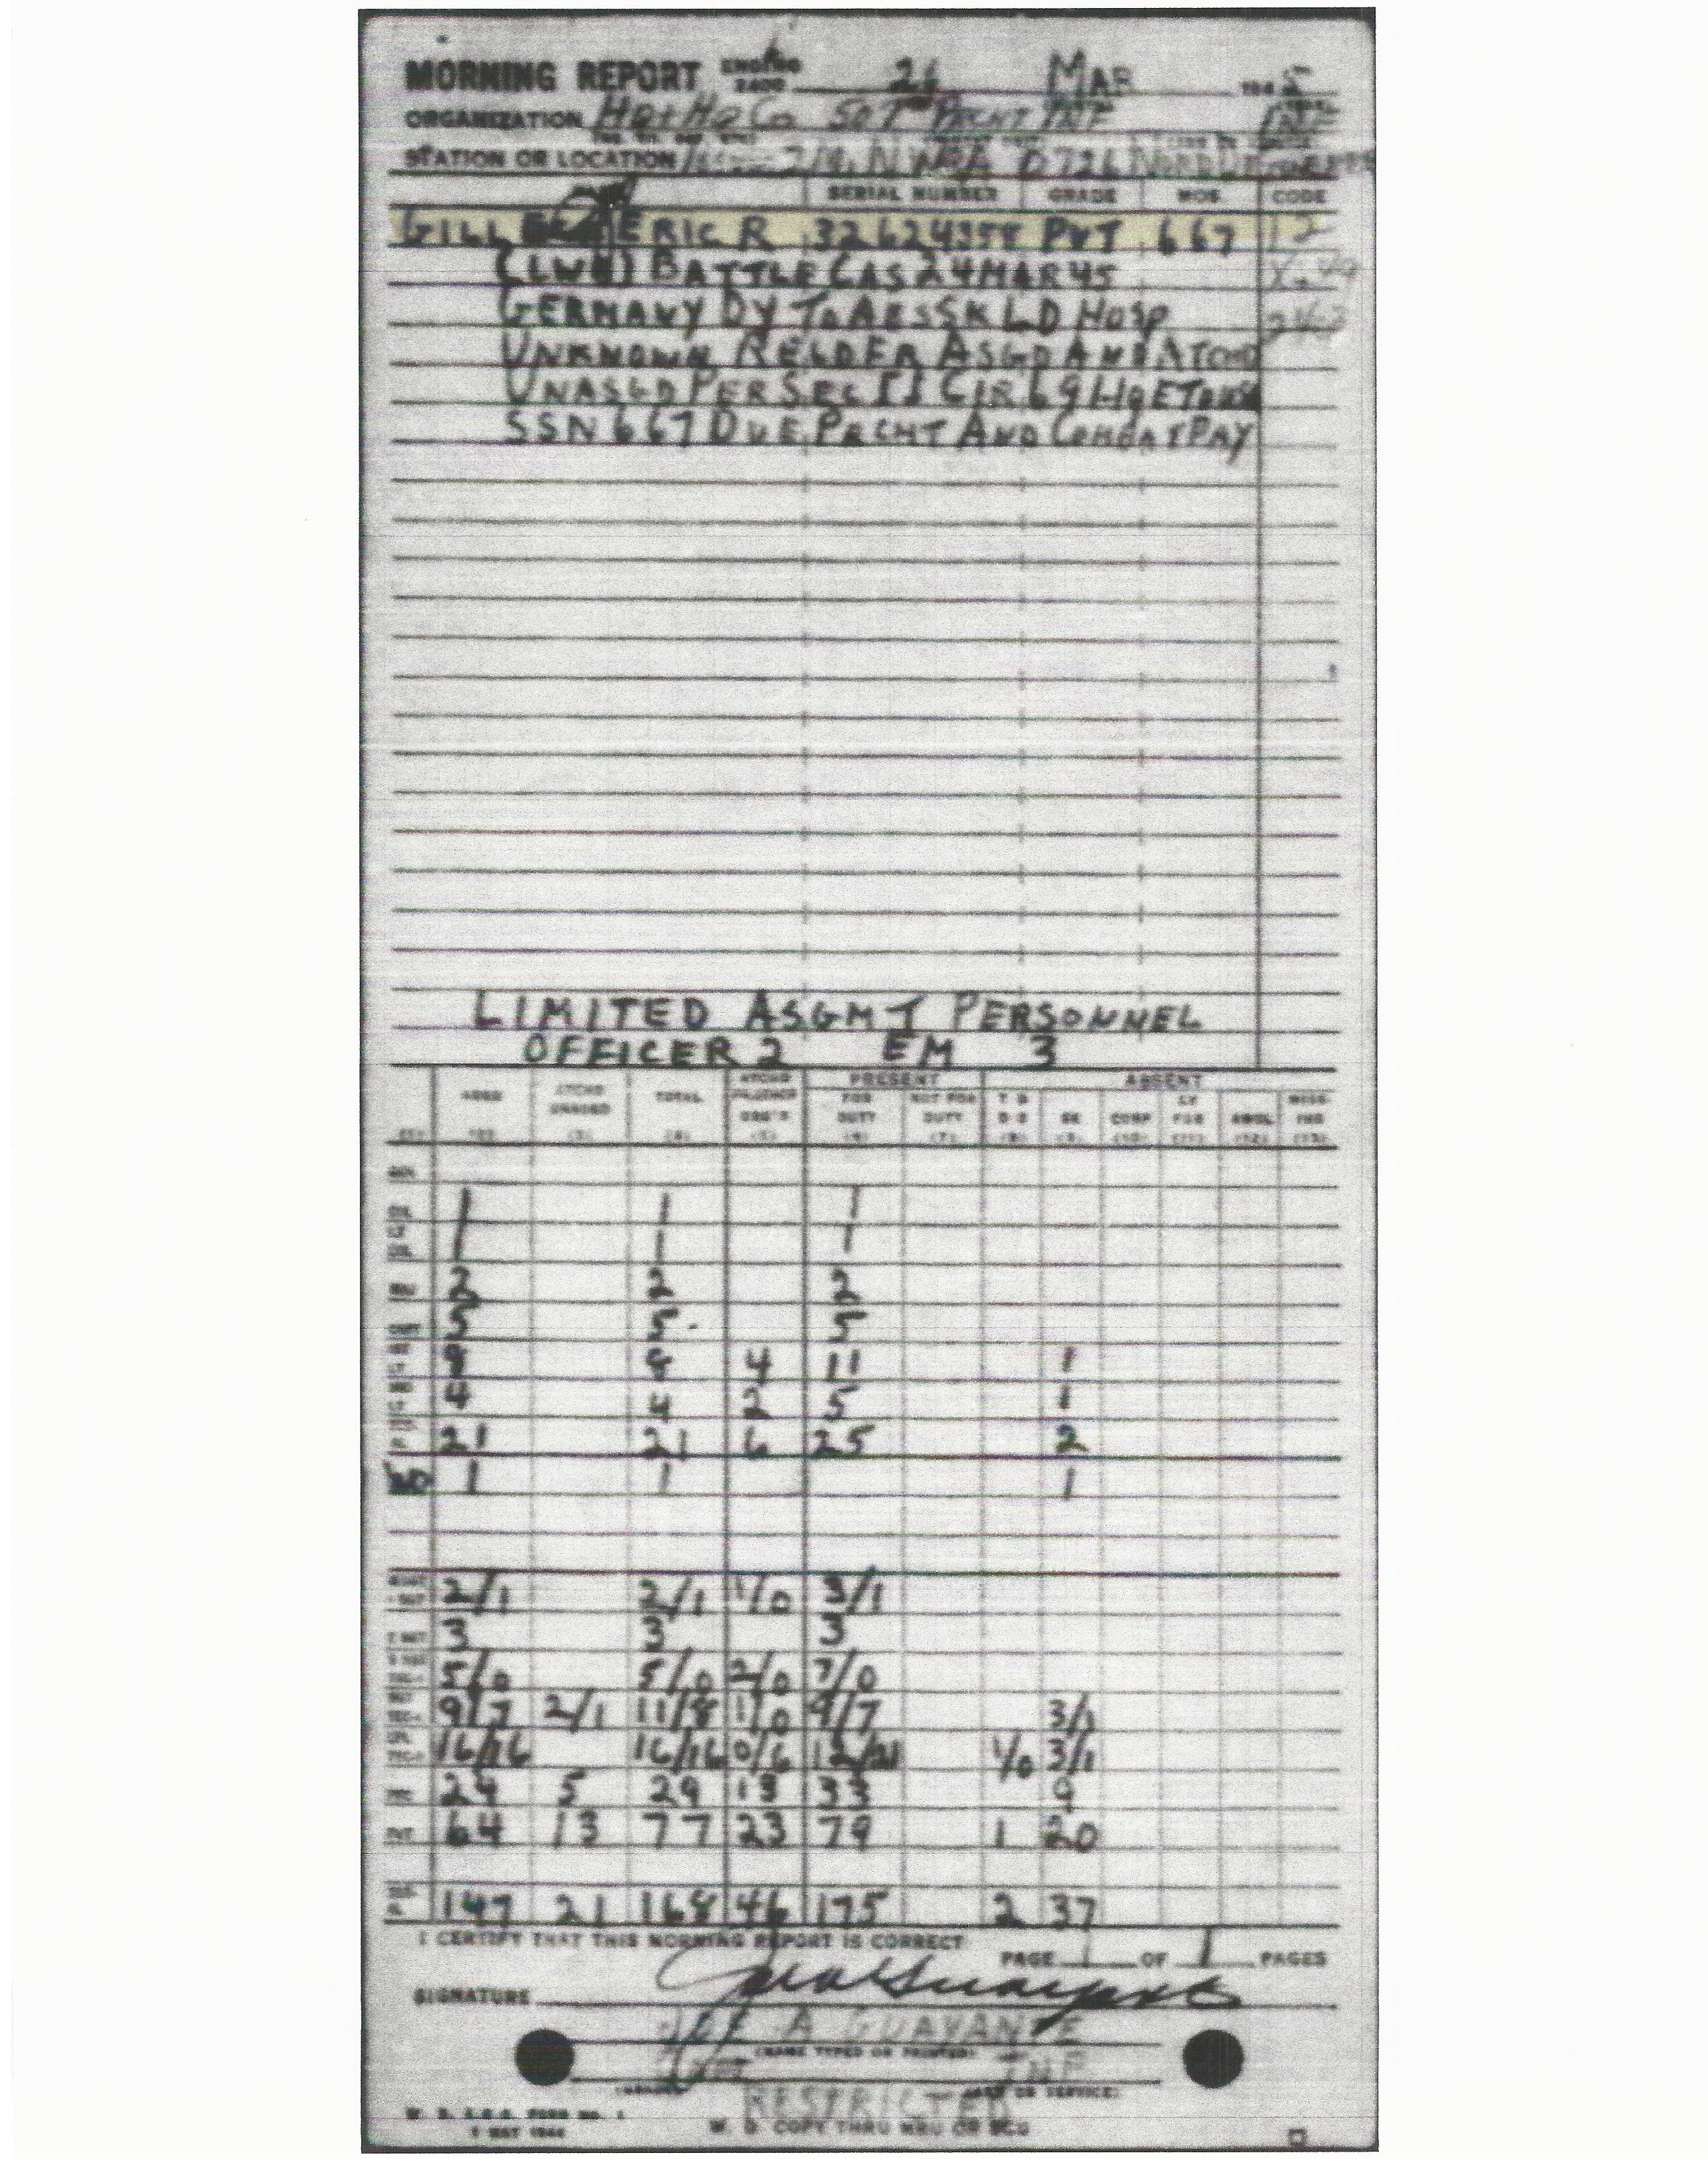 MORNING REPORT ENDING 2400 26 MAR 1945
ORGANIZATION Hq+Hq Co 507 PRCHT INF INF
STATION OR LOCATION
SERIAL NUMBER GRADE MOS. CODE
GILL ERIC R 32624358 PVT 667 12
(LWA) BATTLE CAS 24 MAR 45
GERMANY DY TO ABS SK LD HOSP
UNKNOWN RELD FR ASGD AND ATCHD
UNASGD PER SEC II CIR 69 HQ ETOUSA
SSN 667 DUE PRCHT AND COMBAT PAY
LIMITED ASGMT PERSONNEL
OFFICER 2 EM 3
PRESENT ABSENT
ASGD ATCHD UNASGD TOTAL ATCHD FR OTHER ORG'S FOR DUTY NOT FOR DUTY T D D S SK CONF LV FUR AWOL MISSING
(1) (2) (3) (4) (5) (6) (7) (8) (9) (10) (11) (12) (13)
GEN.
COL. 1 1 1
LT. COL. 1 1 1
MAJ 2 2 2
CAPT 5 5 5
8 8 4 11 1
4 4 2 5 1
21 21 6 25 2
WO 1 1 1
2/1 2/1 1/0 3/1
3 3 3
5/0 5/0 2/0 7/0
9/7 2/1 11/8 1/0 9/7 3/1
16/16 16/16 0/6 12/21 1/0 3/1
24 5 29 13 33 9
PVT 64 13 77 23 79 1 20
147 21 168 46 175 2 37
I CERTIFY THAT THIS MORNING REPORT IS CORRECT: PAGE 1 OF 1 PAGES
SIGNATURE
A GUAYANTE
(NAME TYPED OR PRINTED)
INF
(GRADE) (ARM OR SERVICE)
RESTRICTED
W. D. A.G.O. FORM NO. 1
1 MAY 1944
W. D. COPY THRU MRU OR SCU